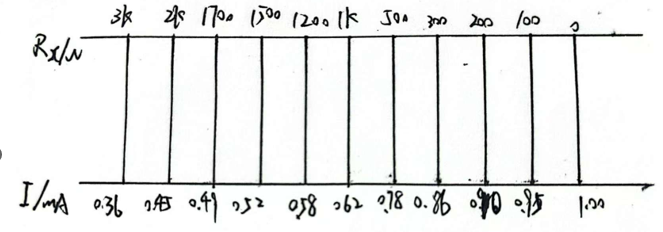 3k 2k 1700 1500 1200 1k 500 300 200 100 0
Rx/Ω
I/mA 0.36 0.45 0.49 0.52 0.58 0.62 0.78 0.86 0.90 0.95 1.00